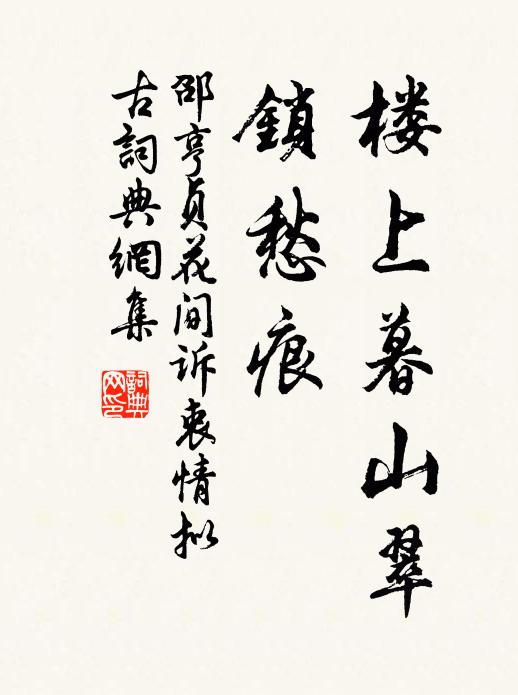 楼上暮山翠
鎖愁痕
邵亨贞花间诉衷情拟
古詞典網集
詞典
网印